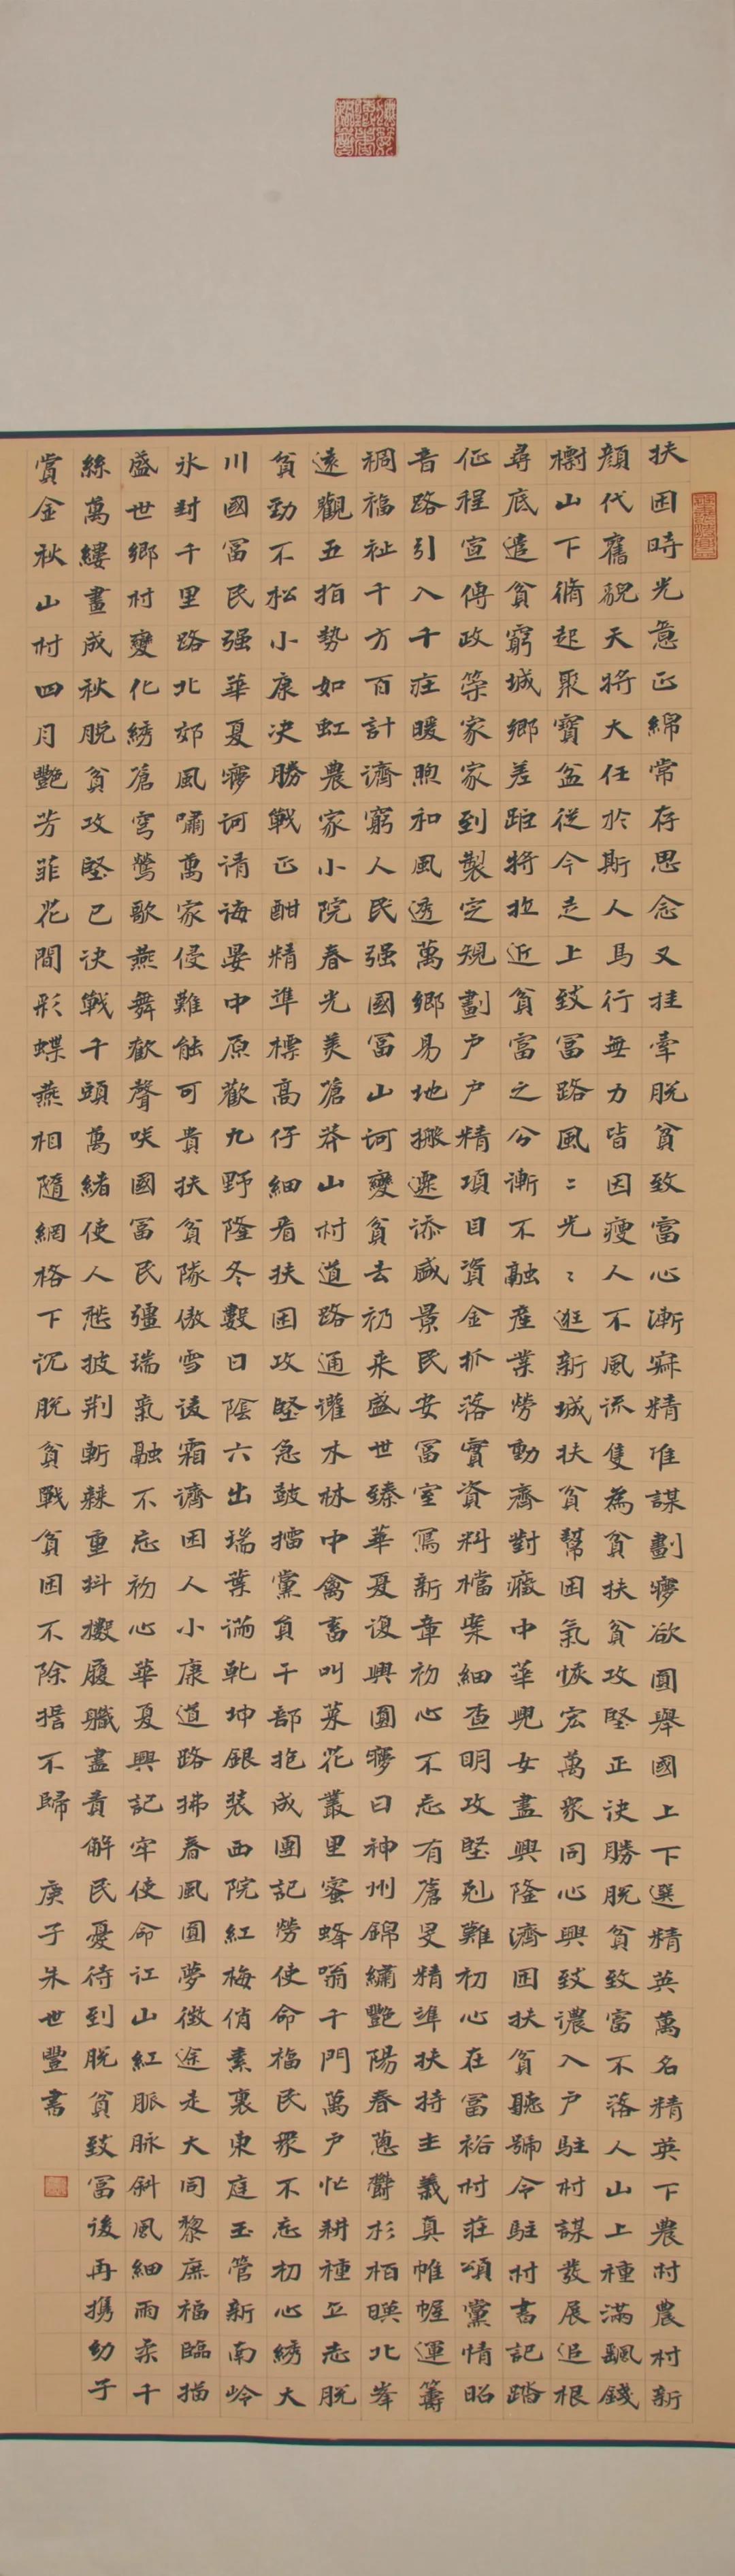 扶困時光意正綿常存思念又挂牽脫貧致富心漸寐精准謀劃夢欲圓舉國上下選精英萬名精英下農村農村新
顏代舊貌天將大任於斯人馬行無力皆因瘦人不風流隻為貧扶貧攻堅正決勝脫貧致富不落人山上種滿飄錢
樹山下脩起聚寶盆從今走上致富路風〻光〻逛新城扶貧幫困氣恢宏萬衆同心興致濃入户駐村謀發展追根
尋底遣貧窮城鄉差距將拉近貧富之分漸不融產業勞動齊對癥中華兒女盡興隆濟困扶貧聽號令駐村書記踏
征程宣傳政策家家到製定規劃户户精項目資金抓落實資料檔案細查明攻堅剋難初心在富裕村莊頌黨情昭
音路引入千莊暖煦和風透萬鄉易地搬遷添盛景民安富室寫新章初心不忘有蒼旻精準扶持主義真帷幄運籌
禂福祉千方百計濟窮人民强國富山河變貧去礽来盛世臻華夏復興圓夢日神州錦繡艷陽春蔥鬱杉栢暎北峯
遠觀五指勢如虹農家小院春光美蒼莽山村道路通灌木林中禽畜叫菜花叢里蜜蜂嗡千門萬户忙耕種立志脫
貧勁不松小康决勝戰正酣精準標高仔細看扶困攻堅急鼓擂黨員干部抱成團記勞使命福民衆不忘初心綉大
川國富民强華夏夢河清海晏中原歡九野隆冬數日陰六出瑞葉滿乾坤銀裝西院紅梅俏素裹東庭玉管新南岭
氷封千里路北郊風嘯萬家侵難能可貴扶貧隊傲雪凌霜濟困人小康道路拂春風圓夢徴途走大同黎庶福臨描
盛世鄉村變化綉蒼穹鶯歌燕舞歡聲咲國富民彊瑞氣融不忘初心華夏興記牢使命江山紅脈脉斜風細雨柔千
絲萬縷畫成秋脫貧攻堅已決戰千頭萬緒使人愁披荆斬棘重抖擻履職盡責解民憂待到脫貧致富後再攜幼子
賞金秋山村四月艷芳菲花間彩蝶燕相隨網格下沉脫貧戰貧困不除誓不歸
庚子朱世豐書